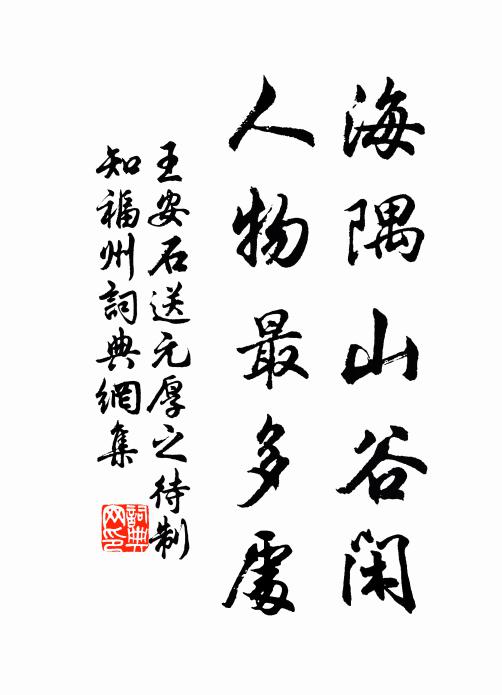 海隅山谷闲
人物最多處
王安石送元厚之待制
知福州詞典網集
詞典网印